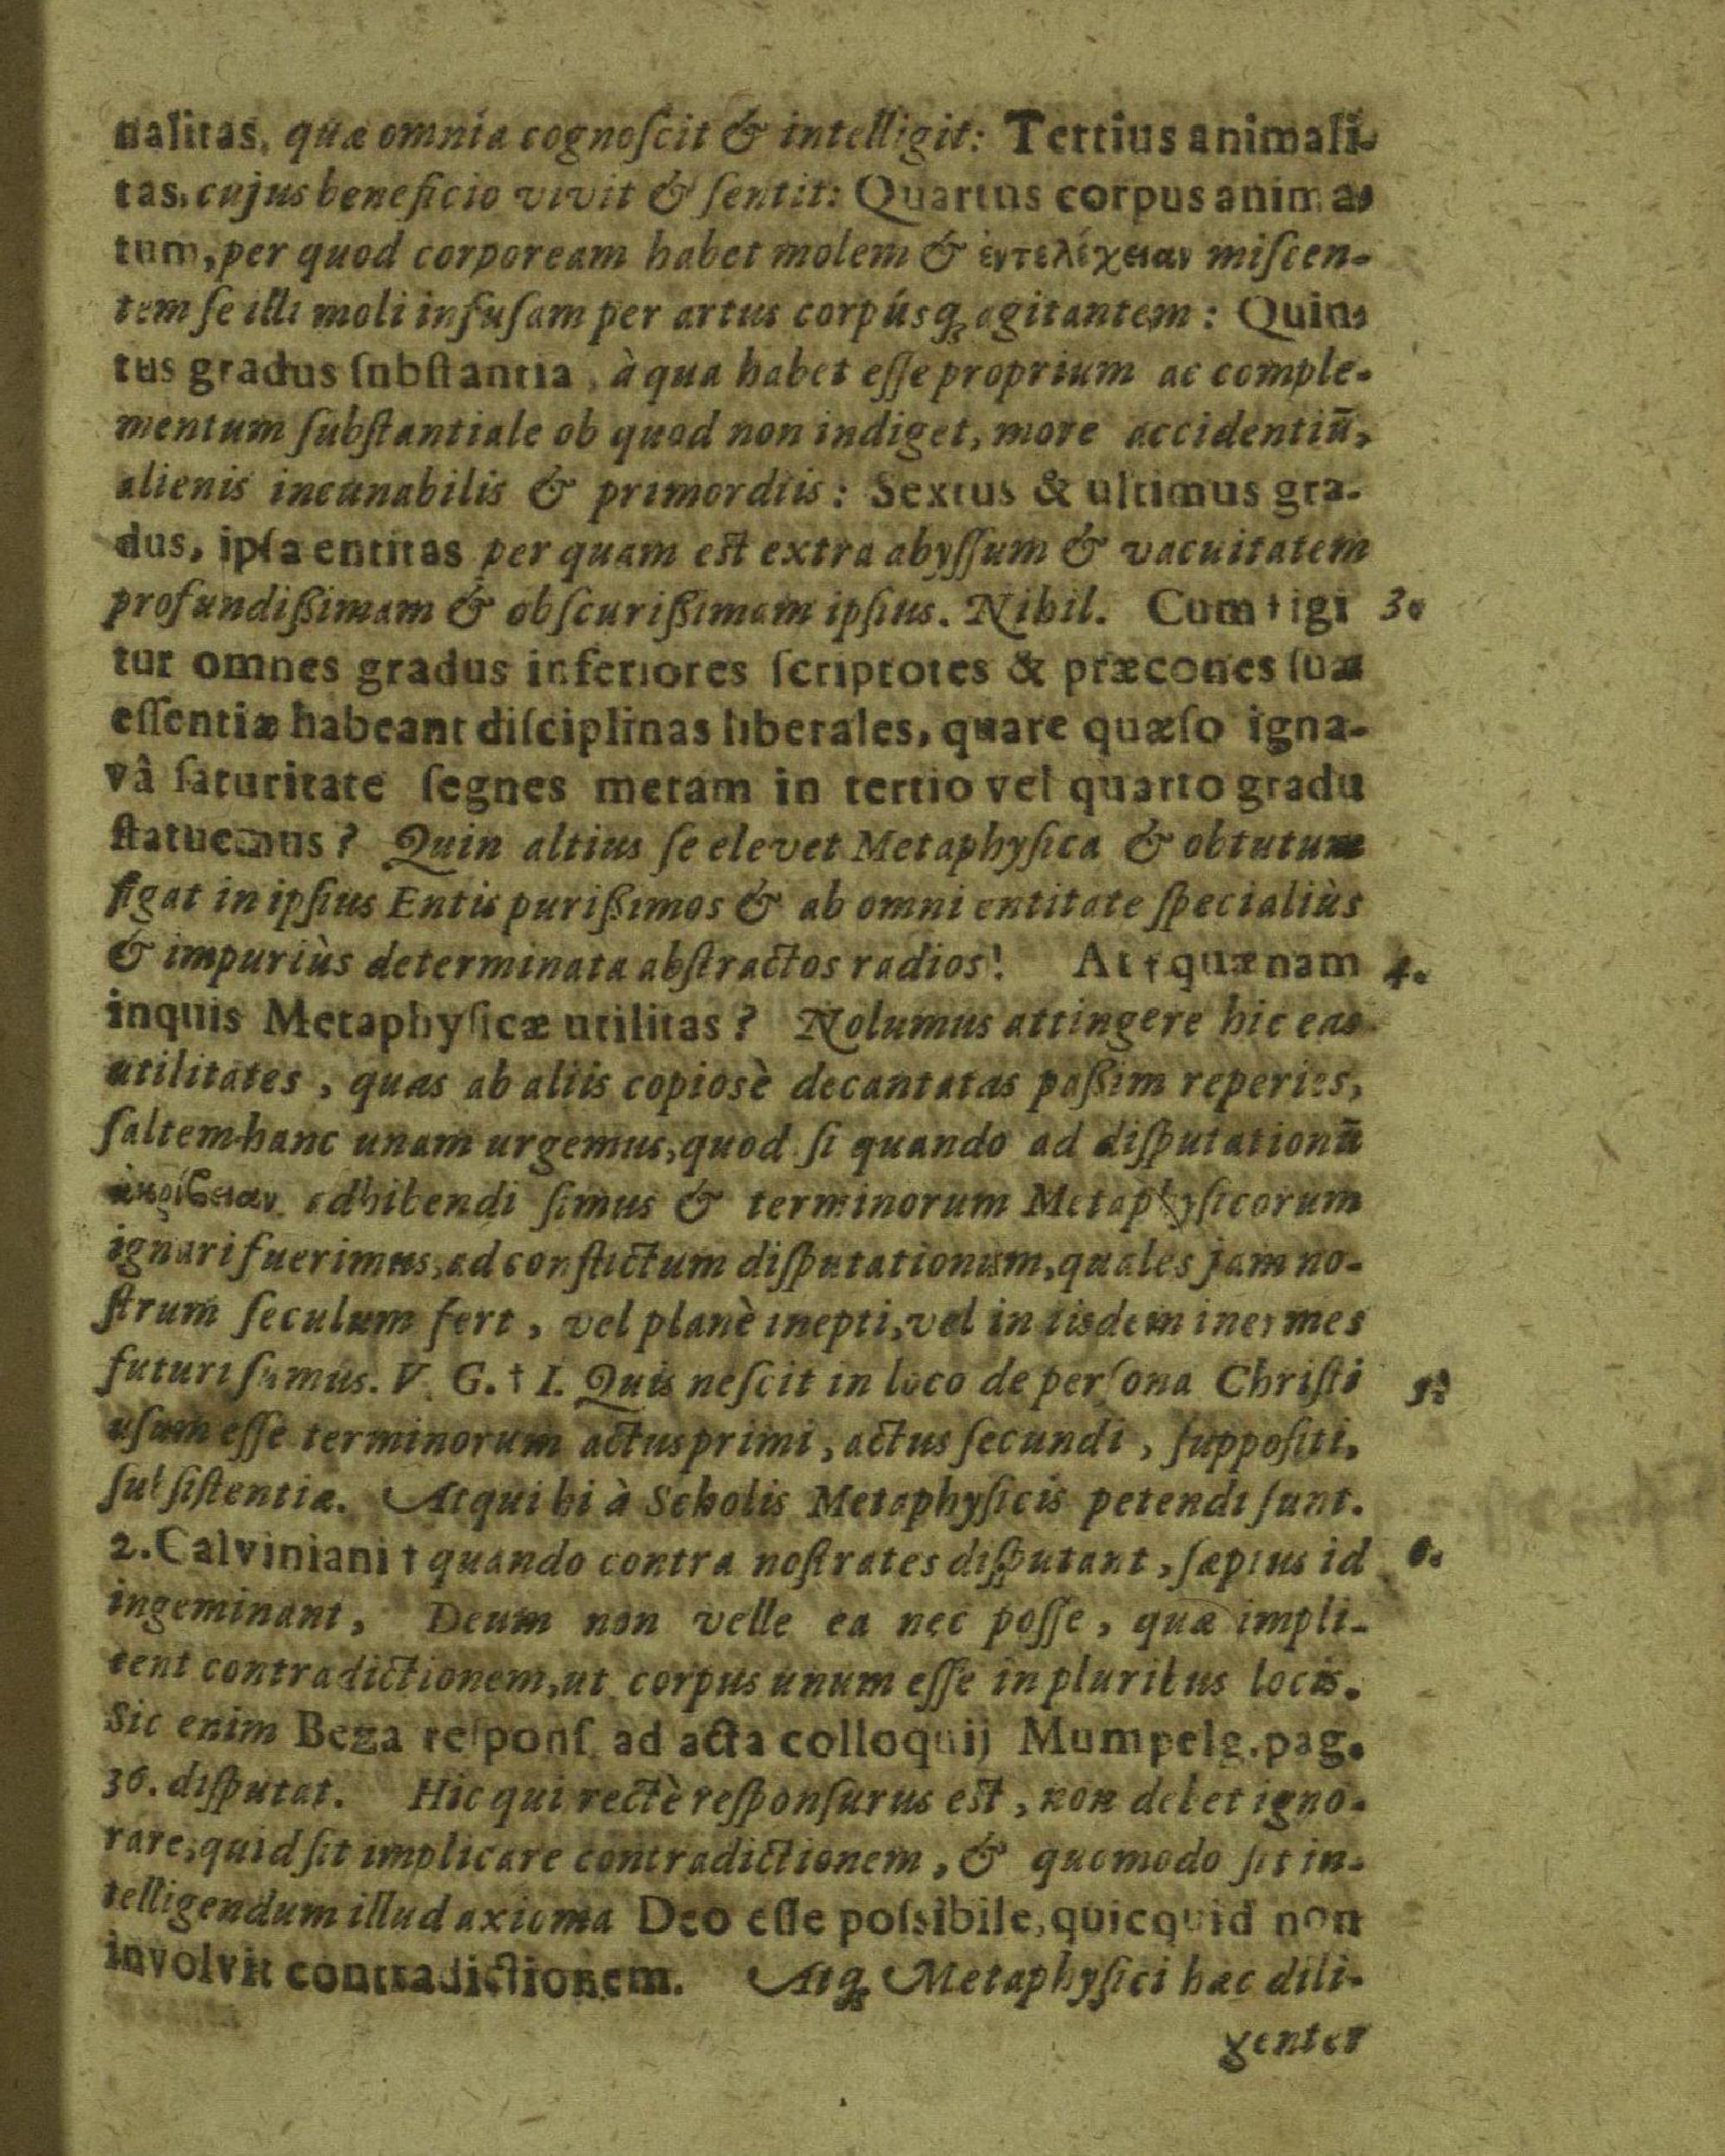 nalitas, quæ omnia cognoſcit & intelligit: Tertius animali-
tas, cujus beneficio vivit & ſentit: Quartus corpus anima-
tum, per quod corpoream habet molem & ἐντελέχειαν miſcen-
tem ſe illi moli infuſam per artus corpúsq́ꝫ agitantem: Quin-
tus gradus ſubſtantia, à qua habet eſſe proprium ac comple-
mentum ſubſtantiale ob quod non indiget, more accidentiū,
alienis incunabilis & primordiis: Sextus & ultimus gra-
dus, ipſa entitas per quam est extra abyſſum & vacuitatem
profundißimam & obſcurißimam ipſius. Nihil. Cum † igi 3.
tur omnes gradus inferiores ſcriptores & præcones ſuæ
eſſentiæ habeant diſciplinas liberales, quare quæſo igna-
vâ ſaturitate ſegnes metam in tertio vel quarto gradu
ſtatuemus? Quin altius ſe elevet Metaphyſica & obtutum
figat in ipſius Entis purißimos & ab omni entitate ſpecialiùs
& impuriùs determinata abſtractos radios! At † quænam 4.
inquis Metaphyſicæ utilitas? Nolumus attingere hic eas
utilitates, quas ab aliis copiosè decantatas paßim reperies,
ſaltem hanc unam urgemus, quod ſi quando ad diſputationū
ἀκρίβειαν adhibendi ſimus & terminorum Metaphyſicorum
ignari fuerimus, ad conflictum diſputationum, quales jam no-
ſtrum ſeculum fert, vel planè inepti, vel in iisdem inermes
futuri ſumus. V. G. † I. Quis neſcit in loco de perſona Chriſti 5.
uſum eſſe terminorum actus primi, actus ſecundi, ſuppoſiti,
ſubſiſtentiæ. Atqui hi à Scholis Metaphyſicis petendi ſunt.
2. Calviniani † quando contra noſtrates diſputant, ſæpius id 6.
ingeminant, Deum non velle ea nec poſſe, quæ impli-
cent contradictionem, ut corpus unum eſſe in pluribus locis.
Sic enim Beza reſponſ. ad acta colloquij Mumpelg. pag.
36. diſputat. Hic qui rectè reſponſurus est, non debet igno-
rare, quid ſit implicare contradictionem, & quomodo ſit in-
telligendum illud axioma Deo eſſe poſsibile, quicquid non
involvit contradictionem. Atqꝫ Metaphyſici hæc dili-
genter